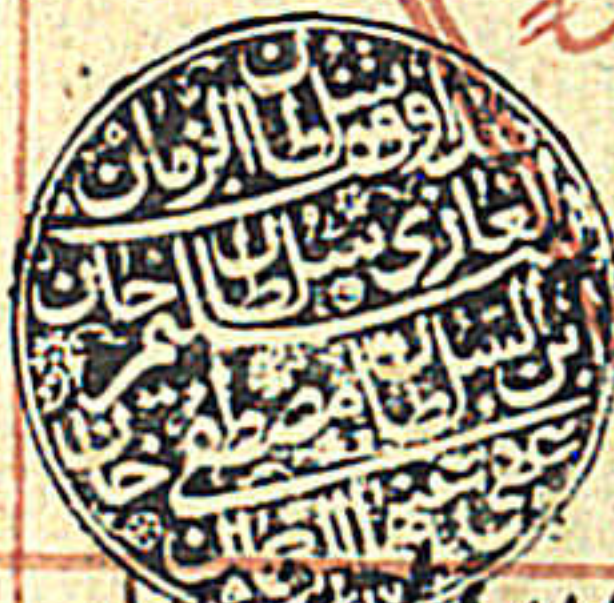 هذا وقف سلطان الزمان
الغازي سلطان سليم خان
بن السلطان مصطفى خان
عفى عنهما